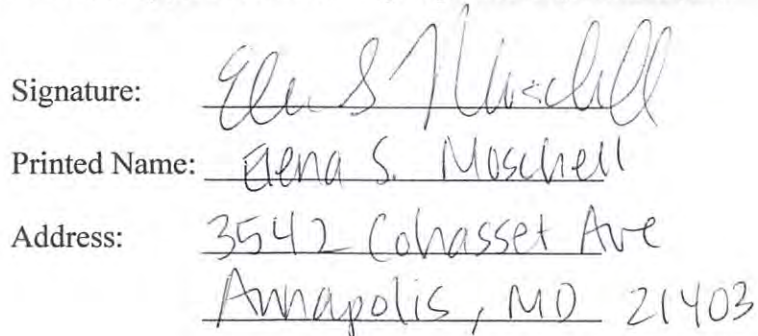 Signature: Elena S Moschell
Printed Name: Elena S. Moschell
Address: 3542 Cohasset Ave
Annapolis, MD 21403